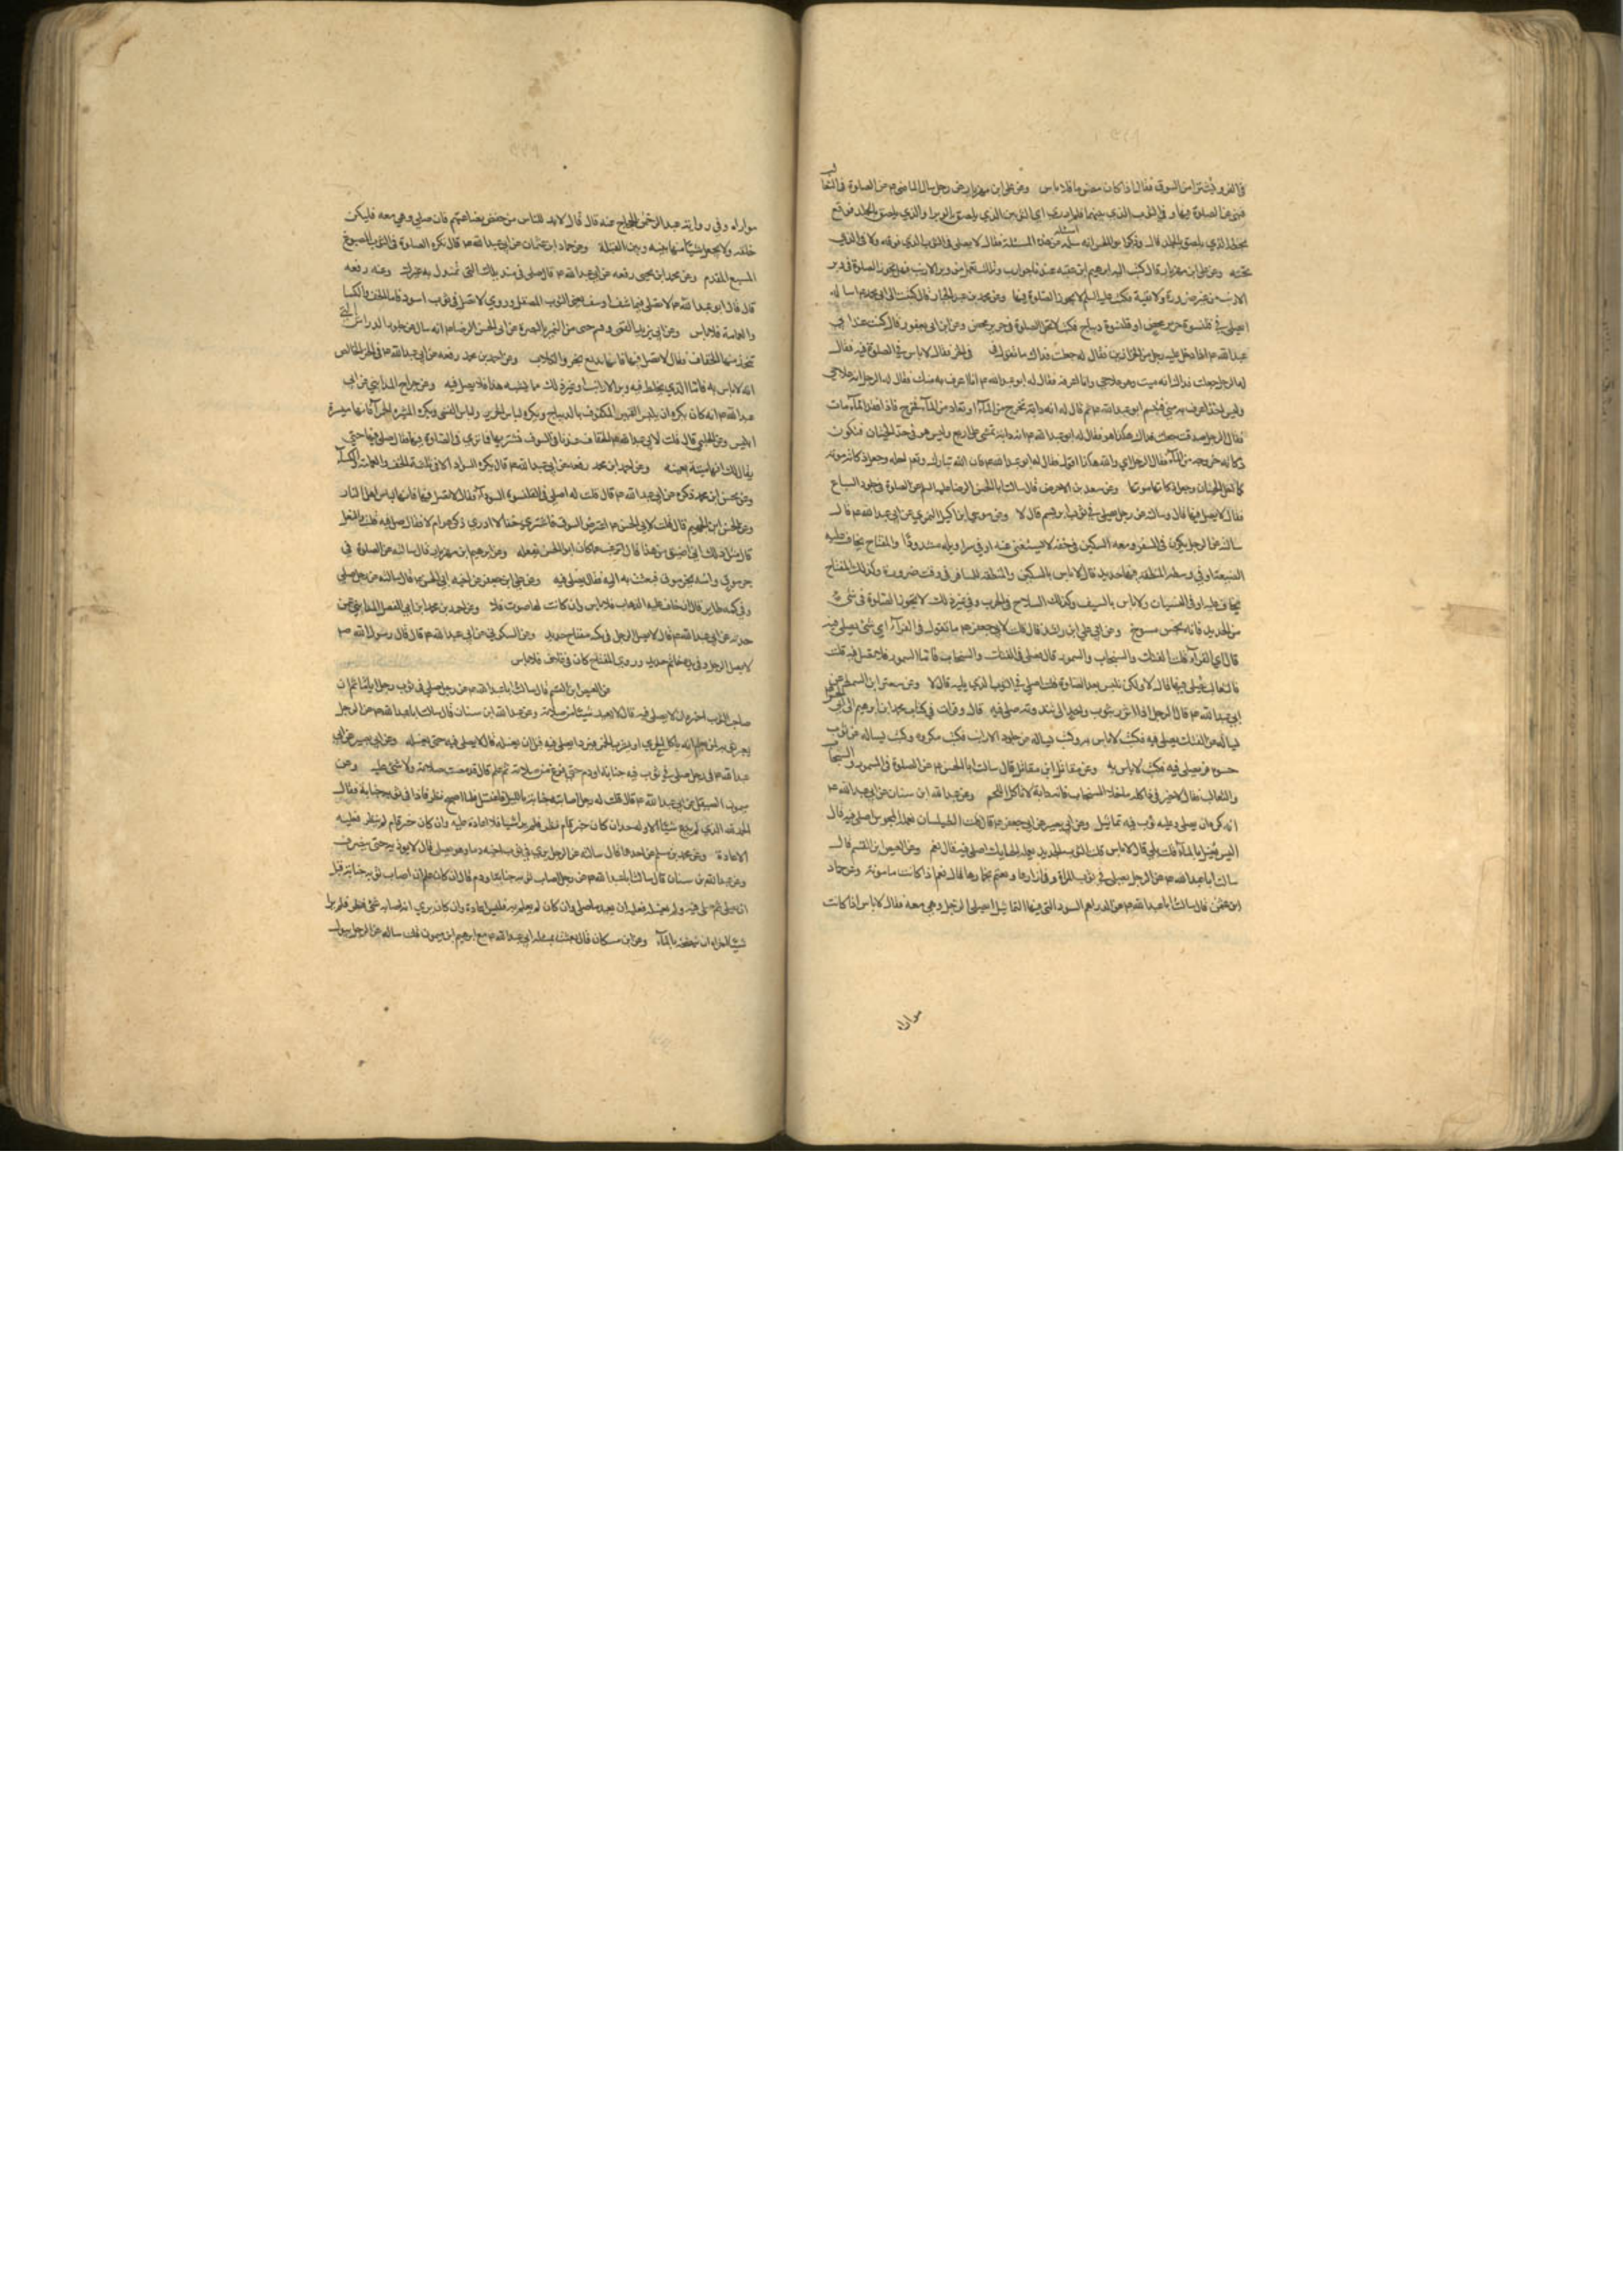 في الفرو يُشترا من السوق فقال اذا كان مضمونا فلا باس وعن علي ابن مهزيار عن رجل سال الماضي ع من الصلوة في الثعالب
فنهى عن الصلوة فيها وفي الثوب الذي يليها فلم ادر اي الثوبين الذي يلصق بالوبر او الذي يلصق بالجلد فوقع
بخطه الذي يلصق بالجلد قال وذكر ابو الحسن انه سئله من هذه المسئلة فقال لا يصلي في الثوب الذي فوقه ولا في الذي
تحته وعن علي ابن مهزيار قال كتب اليه ابرهيم ابن عقبه عندنا جوارب وتكك تعمل من وبر الارانب فهل يجوز الصلوة في وبر
الارنب من غير ضرورة ولا تقية فكتب عليه السلم لا يجوز الصلوة فيها وعن محمد بن عبد الجبار قال كتبت الى ابي محمد ع اساله
ايصلى في قلنسوة حرير محض او قلنسوة ديباج فكتب لا تحل الصلوة في حرير محض وعن ابن ابي يعفور قال كنت عند ابي
عبد الله ع اذا دخل عليه رجل من الخزازين فقال له جعلت فداك ما تقول في الخز فقال لا باس في الصلوة فيه فقال
له الرجل جعلت فداك انه ميت وهو علاجي وانا اعرفه فقال له ابو عبد الله ع انا اعرف به منك فقال له الرجل انه علاجي
وليس احد اعرف به مني فتبسم ابو عبد الله ع ثم قال له انه دابة تخرج من المآء او تصاد من المآء فتخرج فاذا فقد المآء مات
فقال الرجل صدقت جعلت فداك هكذا هو فقال له ابو عبد الله ع انه دابة تمشي على اربع وليس هو في حد الحيتان فتكون
ذكاته خروجه من المآء فقال الرجل اي والله هكذا اقول فقال له ابو عبد الله ع فان الله تبارك وتع احله وجعل ذكاته موته
كما احل الحيتان وجعل ذكاتها موتها وعن سعد بن الاحوص قال سالت ابا الحسن الرضا عليه السلم عن الصلوة في جلود السباع
فقال لا يصل فيها قال وسالت عن رجل يصلي في ثوب ابريسم قال لا وعن موسى ابن اكيل النميري عن ابي عبد الله ع قال
سالته عن الرجل يكون في السفر ومعه السكين في خفه لا يستغنى عنه او في سراويله مشدودًا والمفتاح يخاف عليه
الضيعة او في وسطه المنطقه فيها حديد قال لا باس بالسكين والمنطقه للمسافر في وقت ضرورة وكذلك المفتاح
يخاف عليه او في النسيان ولا باس بالسيف وكذلك السلاح في الحرب وفي غير ذلك لا يجوز الصلوة في شيء
من الحديد فانه نجس مسوخ وعن ابي علي ابن راشد قال قلت لابي جعفر ع ما تقول في الفرآء اي شئ يصلى فيه
قال اي الفرآء قلت الفنك والسنجاب والسمور قال فصل في الفنك والسنجاب فاما السمور فلا تصل فيه قلت
فالثعالب يُصلى فيها قال لا ولكن تلبس بعد الصلوة قلت اصلي في الثوب الذي يليه قال لا وعن
ابي عبد الله ع قال الرجل اذا اتزر بثوب واحد الى ثندوته صلى فيه قال وقرات في كتاب محمد ابن ابرهيم الى ابي الحسن
يساله عن الفنك يصلى فيه فكتب لا باس به وكتب يساله عن جلود الارانب فكتب مكروه وكتب يساله عن ثوب
حسو قز يصلى فيه فكتب لا باس به وعن مقاتل ابن مقاتل قال سالت ابا الحسن ع عن الصلوة في السمور والسنجاب
والثعالب فقال لا خير في ذا كله ما خلا السنجاب فانه دابة لا تاكل اللحم وعن عبد الله ابن سنان عن ابي عبد الله ع
انه كره ان يصلي وعليه ثوب فيه تماثيل وعن ابي بصير عن ابي جعفر ع قال قلت الطيلسان يعمله المجوس اصلي فيه قال
اليس يُغسل بالمآء قلت بلى قال لا باس قلت الثوب الجديد يعمله الحايك اصلى فيه قال نعم وعن العيص ابن القسم قال
سالت ابا عبد الله ع عن الرجل يصلي في ثوب المراة وفي ازارها ويعتم بخمارها قال نعم اذا كانت مامونة وعن حماد
ابن عثمن قال سالت ابا عبد الله ع عن الدراهم السود التي فيها التماثيل ايصلي الرجل وهي معه فقال لا باس اذا كانت
مواراه
مواراه وفي رواية عبد الرحمن الحجاج عنه قال قال لا بد للناس من حفظ بضايعهم فان صلى وهي معه فليكن
خلفه ولا يجعل شيئا منها بينه وبين القبلة وعن حماد ابن عثمان عن ابي عبد الله ع قال تكره الصلوة في الثوب المصبوغ
المشبع المقدم وعن محمد ابن يحيى رفعه عن ابي عبد الله ع قال صلى في منديلك التي تمندل به وعنه رفعه
قال قال ابو عبد الله ع لا تصل فيما شف او سف يعني الثوب المصقل وروي لا تصل في ثوب اسود فاما الخف والكسا
والعمامة فلا باس وعن ابي يزيد القسمي وقسم حي من اليمن بالبصرة عن ابي الحسن الرضا ع انه ساله عن جلود الدارش التي
تتخذ منها الخفاف فقال لا تصل فيها فانها تدبغ بخرء الكلاب وعن احمد بن محمد رفعه عن ابي عبد الله ع في الخز الخالص
انه لا باس به فاما الذي يخلط فيه وبر الارانب او غير ذلك ما يشبه هذا فلا يصل فيه وعن جراح المدايني عن ابي
عبد الله ع انه كان يكره ان يلبس القميص المكفوف بالديباج ويكره لباس الحرير ولباس القسي ويكره الميثره الحمرآء فانها ميثرة
ابليس وعن الحلبي قال قلت لابي عبد الله ع الخفاف عندنا في السوق نشتريها فما ترى في الصلوة فيها فقال صل فيها حتى
يقال لك انها ميتة بعينه وعن احمد ابن محمد رفعه عن ابي عبد الله ع قال يكره السواد الا في ثلثة الخف والعمامة والكسآء
وعن محسن ابن محمد ذكره عن ابي عبد الله ع قال قلت له اصلي في القلنسوه السودآء فقال لا تصل فيها فانها لباس اهل النار
وعن الحسن ابن الجهم قال قلت لابي الحسن ع اعترض السوق فاشتري خفا لا ادري ذكي هو ام لا فقال صل فيه قلت فالنعل
قال مثل ذلك اني اضيق من هذا قال اترغب عما كان ابو الحسن يفعله وعن ابرهيم ابن مهزيار قال سالته عن الصلوة في
جرموق واتيته بجرموق فبعثت به اليه فقال يصلى فيه وعن علي ابن جعفر عن اخيه ابي الحسن ع قال سالته عن رجل صلى
وفي كمه طاير قال ان خاف عليه الذهاب فلا باس وان كانت لها صوت فلا وعن احمد بن محمد ابن ابي الفضل المدايني عمن
حدثه عن ابي عبد الله ع قال لا يصل الرجل في تكه مفتاح حديد وعن السكوني عن ابي عبد الله ع قال قال رسول الله ص
لا يصل الرجل وفي يده خاتم حديد وروي المفتاح كان في غلاف فلا باس
عن العيص ابن القسم قال سالت ابا عبد الله ع من رجل صلى في ثوب رجل اياما ثم ان
صاحب الثوب اخبره ان لا يصلى فيه قال لا يعيد شيئا من صلاته وعن عبد الله ابن سنان قال سالت ابا عبد الله ع عن الرجل
يعير ثوبه لمن يعلم انه ياكل الجري او يشرب الخمر فيرده ايصلي فيه قبل ان يغسله قال لا يصلى فيه حتى يغسله وعن ابي بصير عن ابي
عبد الله ع في رجل صلى في ثوب فيه جنابة او دم حتى فرغ من صلاته ثم علم قال قد مضت صلاته ولا شئ عليه وعن
ميمون الصيقل عن ابي عبد الله ع قال قلت له رجل اصابته جنابة بالليل فاغتسل فلما اصبح نظر فاذا في ثوبه جنابة فقال
الحمد لله الذي لم يدع شيئا الا وله حد ان كان حين قام نظر فلم ير شيا فلا اعاده عليه وان كان حين قام لم ينظر فعليه
الاعادة وعن محمد بن مسلم عن احدهما قال سالته عن الرجل يرى في ثوب اخيه دما وهو يصلى قال لا يؤذيه حتى ينصرف
وعن عبد الله بن سنان قال سالت ابا عبد الله ع عن رجل اصاب ثوبه جنابة او دم قال ان كان علم انه اصاب ثوبه جنابة قبل
ان يصلي ثم صلى فيه ولم يغسله فعليه ان يعيد ما صلى وان كان لم يعلم به فليس عليه اعادة وان كان يرى انه اصابه شئ فنظر فلم ير
شيئا اجزاه ان ينضحه بالمآء وعن ابن مسكان قال بعثت بمسئلة الى ابي عبد الله ع مع ابرهيم ابن ميمون قلت ساله عن الرجل يبول